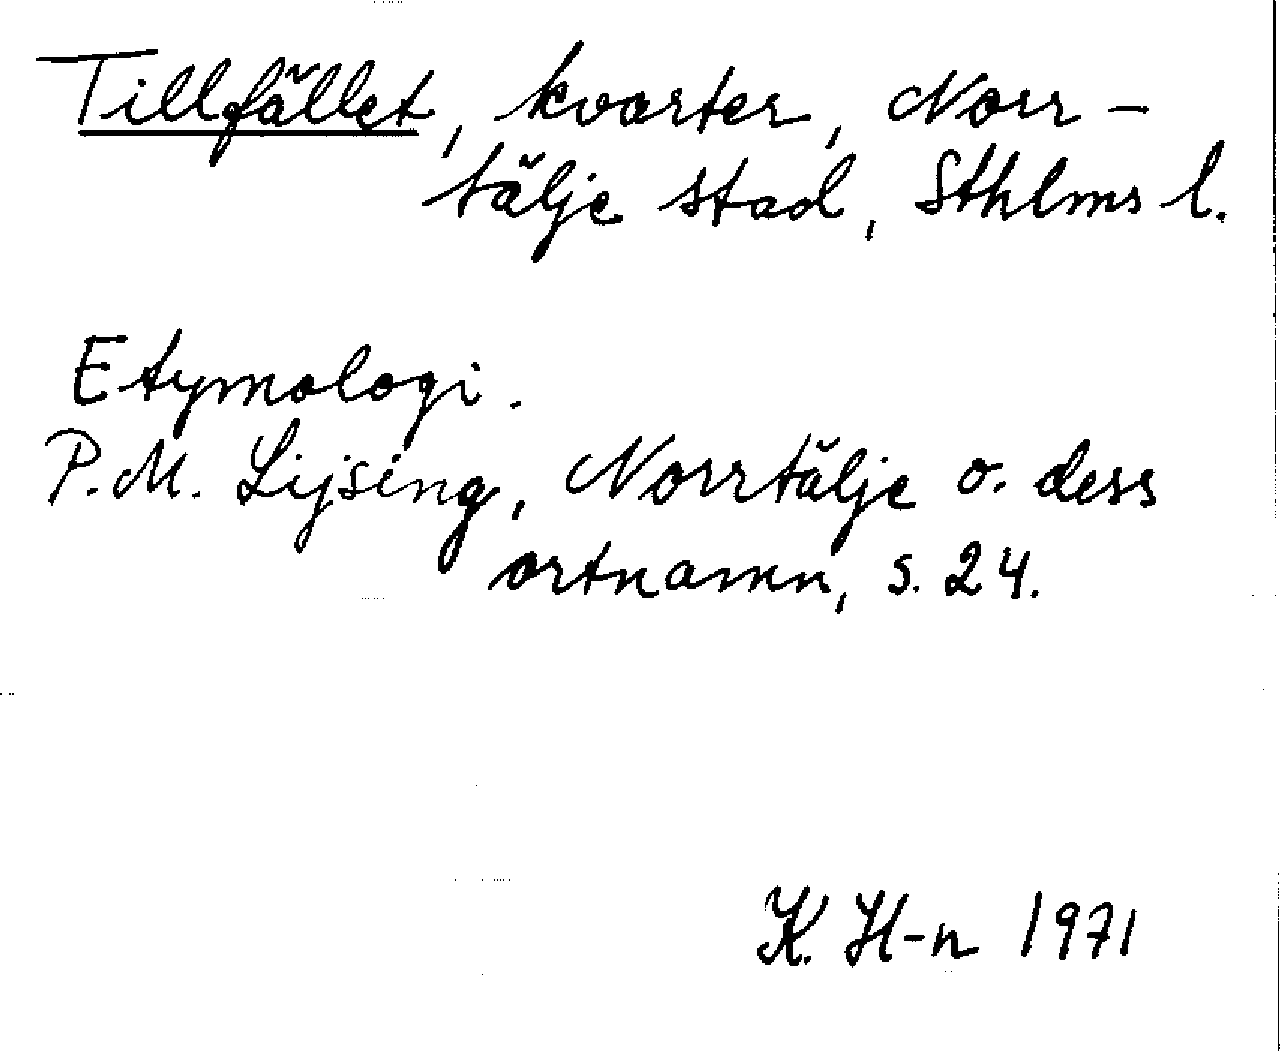 Tillfället, kvarter, Norr-
tälje stad, Sthlms l.
Etymologi.
P.M. Lijsing, Norrtälje o. dess
ortnamn, s. 24.
K. H-n 1971